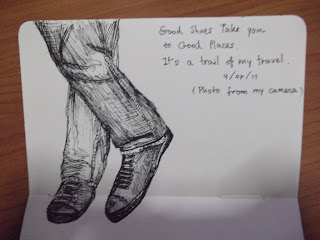 Good Shoes Take you
to Good Places.
It's a trail of my travel.
9/08/11
(Photo from my camera)